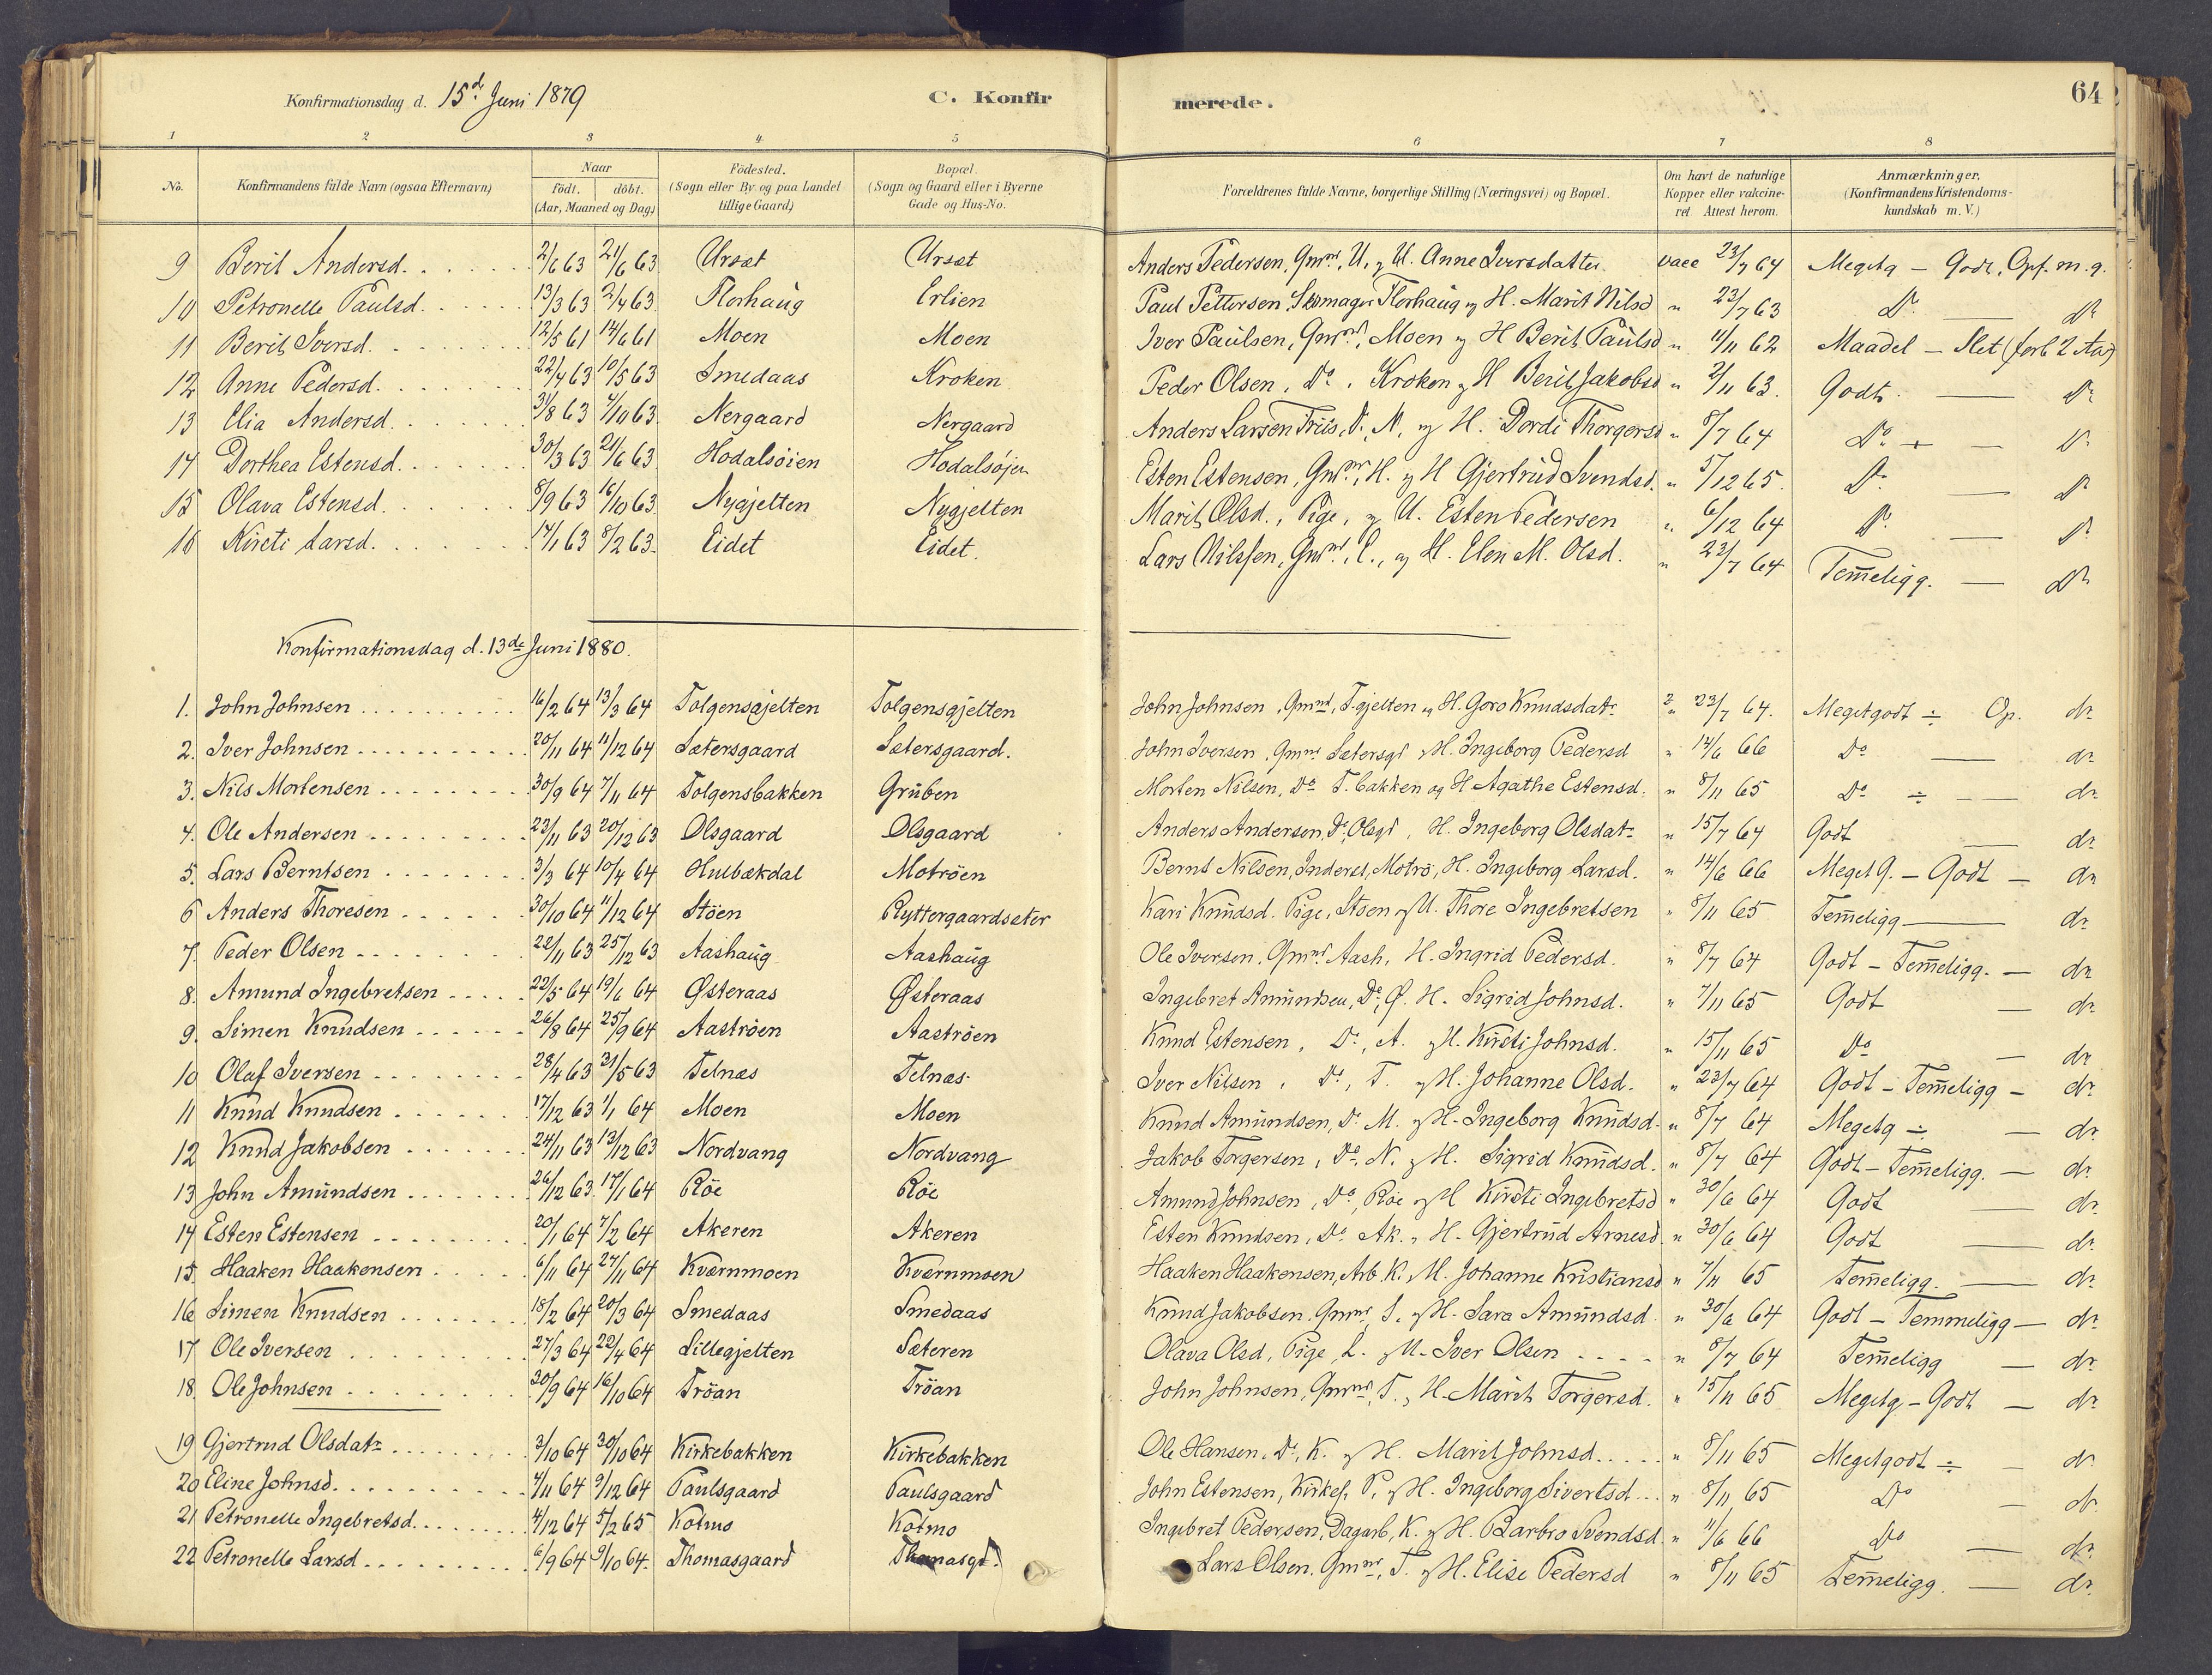 Konfirmationsdag d. 15d. Juni 1879 C. Konfirmerede. 64
1 2 3 4 5 6 7 8
No. Konfirmandens fulde Navn (ogsaa Efternavn) Naar födt. döbt. (Aar, Maaned og Dag.) Födested. (Sogn eller By og paa Landet tillige Gaard.) Bopæl. (Sogn og Gaard eller i Byerne Gade og Hus-No. Forældrenes fulde Navne, borgerlige Stilling (Næringsvei) og Bopæl. Om havt de naturlige Kopper eller vakcineret. Attest herom. Anmærkninger, (Konfirmandens Kristendomskundskab m. V.)
9 Berit Andersd. 2/6 63 21/6 63 Ursæt Ursæt Anders Pedersen, Gmnd, U, og U. Anne Iversdatter vacc 23/7 64 Megetg – Godt, Opf. m. g.
10 Petronelle Paulsd. 13/3 63 2/4 63 Florhaug Erlien Paul Pettersen, Skomager Florhaug og H. Marit Nilsd " 23/7 63 Do — do
11 Berit Iversd. 12/5 61 14/6 61 Moen Moen Iver Paulsen, Gmnd, Moen og H Berit Paulsd " 11/11 62 Maadel – Slet (forb 2 Aar)
12 Anne Pedersd. 22/4 63 10/5 63 Smedaas Kroken Peder Olsen, Do, Kroken og H Berit Jakobsd " 2/11 63. Godt. — do
13 Elia Andersd. 31/8 63 4/10 63 Nergaard Nergaard Anders Larsen Friis, Do, N, og H. Dordi Thorgersd " 8/7 64 Do + — do
14 Dorthea Estensd. 30/3 63 21/6 63 Hodalsöien Hodalsöjen Esten Estensen, Gmnd, H. og H Gjertrud Svendsd. " 5/12 65. Do — do
15 Olava Estensd. 8/9 63 16/10 63 Nygjelten Nygjelten Marit Olsd., Pige, og U. Esten Pedersen " 6/12 64 Do — do
16 Kirsti Larsd. 14/1 63 8/2 63. Eidet Eidet. Lars Nilssen, Gmnd, E., og H. Elen M. Olsd. " 23/7 64 Temeligg. — do
Konfirmationsdag d. 13de Juni 1880.
1. John Johnsen 16/2 64 13/3 64 Tolgensgjelten Tolgensgjelten John Johnsen, Gmnd, T.gjelten og H. Goro Knudsdatr " 23/7 64. Megetgodt ÷ Op. do
2. Iver Johnsen 20/11 64 11/12 64 Sætersgaard Sætersgaard. John Iversen, Gmnd Sætersgd og H. Ingeborg Pedersd " 14/6 66 Do — do
3. Nils Mortensen 30/9 64 7/11 64 Tolgensbakken Gruben Morten Nilsen, Do T.bakken og H Agathe Estensd. " 8/11 65 Do ÷ — do
4. Ole Andersen 23/11 63 20/12 63 Olsgaard Olsgaard Anders Andersen, Do, Olsgd, H. Ingeborg Olsdatr " 15/7 64 Godt — do
5. Lars Berntsen 3/3 64 10/4 64 Hulbækdal Motröen Bernt Nilsen, Inderst, Motrö, H. Ingeborg Larsd. " 14/6 66 Meget g. – Godt – do
6 Anders Thoresen 30/10 64 11/12 64 Stöen Ryttergaardsæter Kari Knudsd. Pige, Stöen og U. Thore Ingebretsen " 8/11 65 Temeligg — do
7. Peder Olsen 22/11 63 25/12 63 Aashaug Aashaug Ole Iversen, Gmnd Aash, H. Ingrid Pedersd. " 8/7 64 Godt – Temeligg. – do
8. Amund Ingebretsen 22/5 64 19/6 64 Østeraas Østeraas Ingebret Amundsen, Do, Ø. H. Sigrid Johnsd. " 7/11 65 Godt — do
9. Simen Knudsen 26/8 64 25/9 64 Aaströen Aaströen Knud Estensen, Do, A. og H. Kirsti Johnsd. " 15/11 65 Do — do
10 Olaf Iversen 28/4 63 31/5 63 Telnæs Telnæs Iver Nilsen, Do, T. og H. Johanne Olsd. " 23/7 64 Godt – Temeligg – do
11 Knud Knudsen 17/12 63 1/1 64 Moen Moen Knud Amundsen, Do M. og H. Ingeborg Knudsd. " 8/7 64 Megetg ÷ — do
12 Knud Jakobsen 24/11 63 13/12 63 Nordvang Nordvang Jakob Torgersen, Do, N. og H. Sigrid Knudsd. " 8/7 64 Godt – Temeligg. — do
13 John Amundsen 26/12 63 17/1 64 Röe Röe Amund Johnsen, Do, Röe og H Kirsti Ingebretsd " 30/6 64 Godt — do
14 Esten Estensen 20/1 64 7/2 64 Akeren Akeren Esten Knudsen, Do Ak. " H. Gjertrud Arnesd. " 30/6 64 Godt — do
15 Haaken Haakensen 6/11 64 27/11 64 Kværnmoen Kværnmoen Haaken Haakensen, Arb. K. H. Johanne Kristiansd " 7/11 65 Temeligg. — do
16 Simen Knudsen 18/2 64 20/3 64 Smedaas Smedaas Knud Jakobsen, Gmnd, S. og H. Sara Amundsd " 30/6 64 Godt – Temmeligg – do
17 Ole Iversen 27/3 64 22/4 64 Lillegjelten Sæteren Olava Olsd, Pige, L. og U. Iver Olsen " 8/7 64 Temeligg — do
18 Ole Johnsen 30/9 64 16/10 64 Tröan Tröan John Johnsen, Gmnd, T., H. Marit Torgersd. " 15/11 65 Megetg – Godt — do
19 Gjertrud Olsdatr 3/10 64 30/10 64 Kirkebakken Kirkebakken Ole Hansen, Do, K. og H. Marit Johnsd. " 8/11 65 Megetgodt ÷ — do
20 Eline Johnsd. 4/11 64 9/12 64 Paulsgaard Paulsgaard John Estensen, Kirkes, P, og H. Ingeborg Sivertsd. " 8/11 65 Do — do
21 Petronelle Ingebretsd. 4/12 64 5/2 65 Kotmo Kotmo Ingebret Pedersen, Dagarb, K. og H. Barbro Svendsd. " 11/6 66 Do — do
22 Petronelle Larsd. 6/9 64 9/10 64. Thomasgaard Thomasgd. Lars Olsen, Gmnd, T. og H. Elise Pedersd " 8/11 65 Temeligg. — do